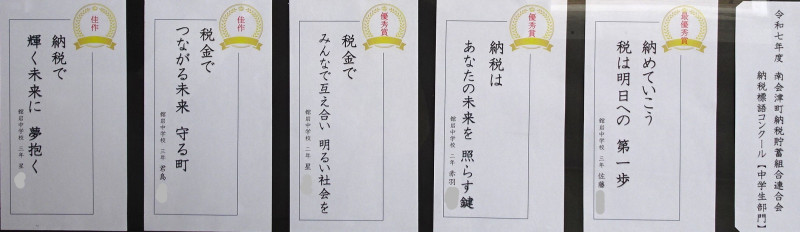 令和七年度 南会津町納税貯蓄組合連合会
納税標語コンクール【中学生部門】
最優秀賞
納めていこう
税は明日への 第一歩
舘岩中学校 三年 佐藤
優秀賞
納税は
あなたの未来を 照らす鍵
舘岩中学校 二年 赤羽
優秀賞
税金で
みんなで互え合い 明るい社会を
舘岩中学校 二年 星
佳作
税金で
つながる未来 守る町
舘岩中学校 三年 君島
佳作
納税で
輝く未来に 夢抱く
舘岩中学校 三年 星